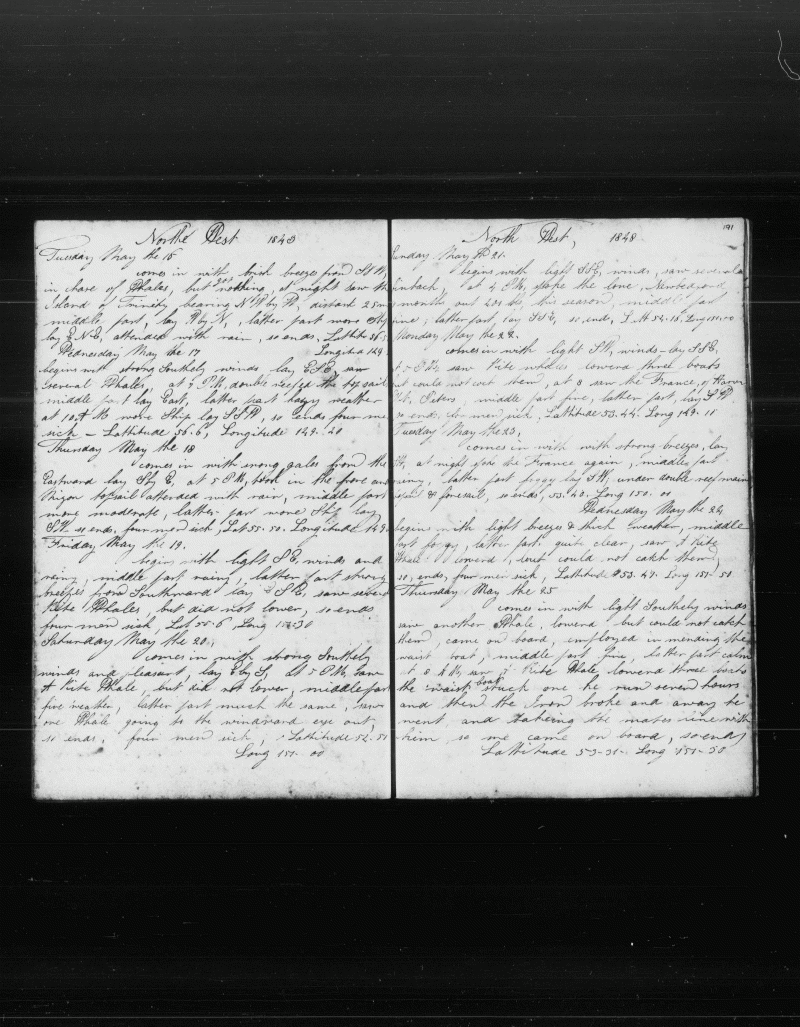 North West 1848
Tuesday May the 16
comes in with brisk breezes from SSW,
in chase of Whales, but got nothing, at night saw the
Island of Trinity bearing NW by W, distant 25 m
middle part, lay W by N, latter part wore Ship
lay ENE, attended with rain, so ends. Lattitude 56
Wednesday May the 17 Longitud 149
begins with strong Southely winds lay ESE, saw
several Whales, at 7 P.M, double reefed the topsails
middle part lay East, latter part heavy weather
at 10 A M wore Ship lay SSW, so ends four men
sick - Lattitude 56-6, Longitude 149-20
Thursday May the 18
comes in with strong gales from the
Eastward lay S by E, at 5 P M, took in the fore and
Mizen topsail attended with rain, middle part
more moderate, latter part wore Ship lay
SW so ends, four men sick, Lat 55-50. Longitude 149
Friday May the 19.
begins with light SE, winds and
rainy, middle part rainy, latter part strong
breezes from Southward lay ESE, saw several
Rite Whales, but did not lower, so ends
four men sick, Lat 55-6, Long 150-30
Saturday May the 20,
comes in with strong Southely
winds and pleasant, lay E by S, at 5 P M, saw
A Rite Whale, but did not lower, middle part
fine weather, latter part much the same, saw
one Whale going to the windward eye out,
so ends, four men sick, Lattitude 52-51
Long 151-00
North West, 1848 191
Sunday May the 21.
begins with light SSE, winds, saw several
finback, at 4 P.M, spoke the Newbedford,
months out 200 bls this season, middle part
fine, latter part, lay SSE, so ends, Lat 52-18, Long 151-00
Monday May the 22.
comes in with light SW, winds - lay SSE.
at 5 P M, saw Rite whales lowerd three boats
but could not get them, at 8 saw the France, of Havre
middle part fine, latter part, lay SW
so ends, four men sick, Lattitude 53-44. Long 149-11
Tuesday May the 23,
comes in with with strong breezes, lay
at night spoke the France again, middle part
rainy, latter part foggy lay SW, under reef main
topsail & foresail, so ends, 53-40. Long 150-00
Wednesday May the 24
begins with light breezes & thick weather, middle
part foggy, latter part quit clear, saw A Rite
Whale lowerd, but could not catch them,
so, ends, four men sick, Lattitude 53-49. Long 151-50
Thursday May the 25
comes in with light Southely winds
saw another Whale, lowerd but could not catch
them, came on board, employed in mending the
waist boat, middle part fine, latter part calm
at 8 A M, saw A Rite Whale lowerd three boats
the waist boat struck one he run seven hours
and then the Iron broke and away he
went, and the mates line with
him so we came on board, so ends
Lattitude 53-31. Long 151-50